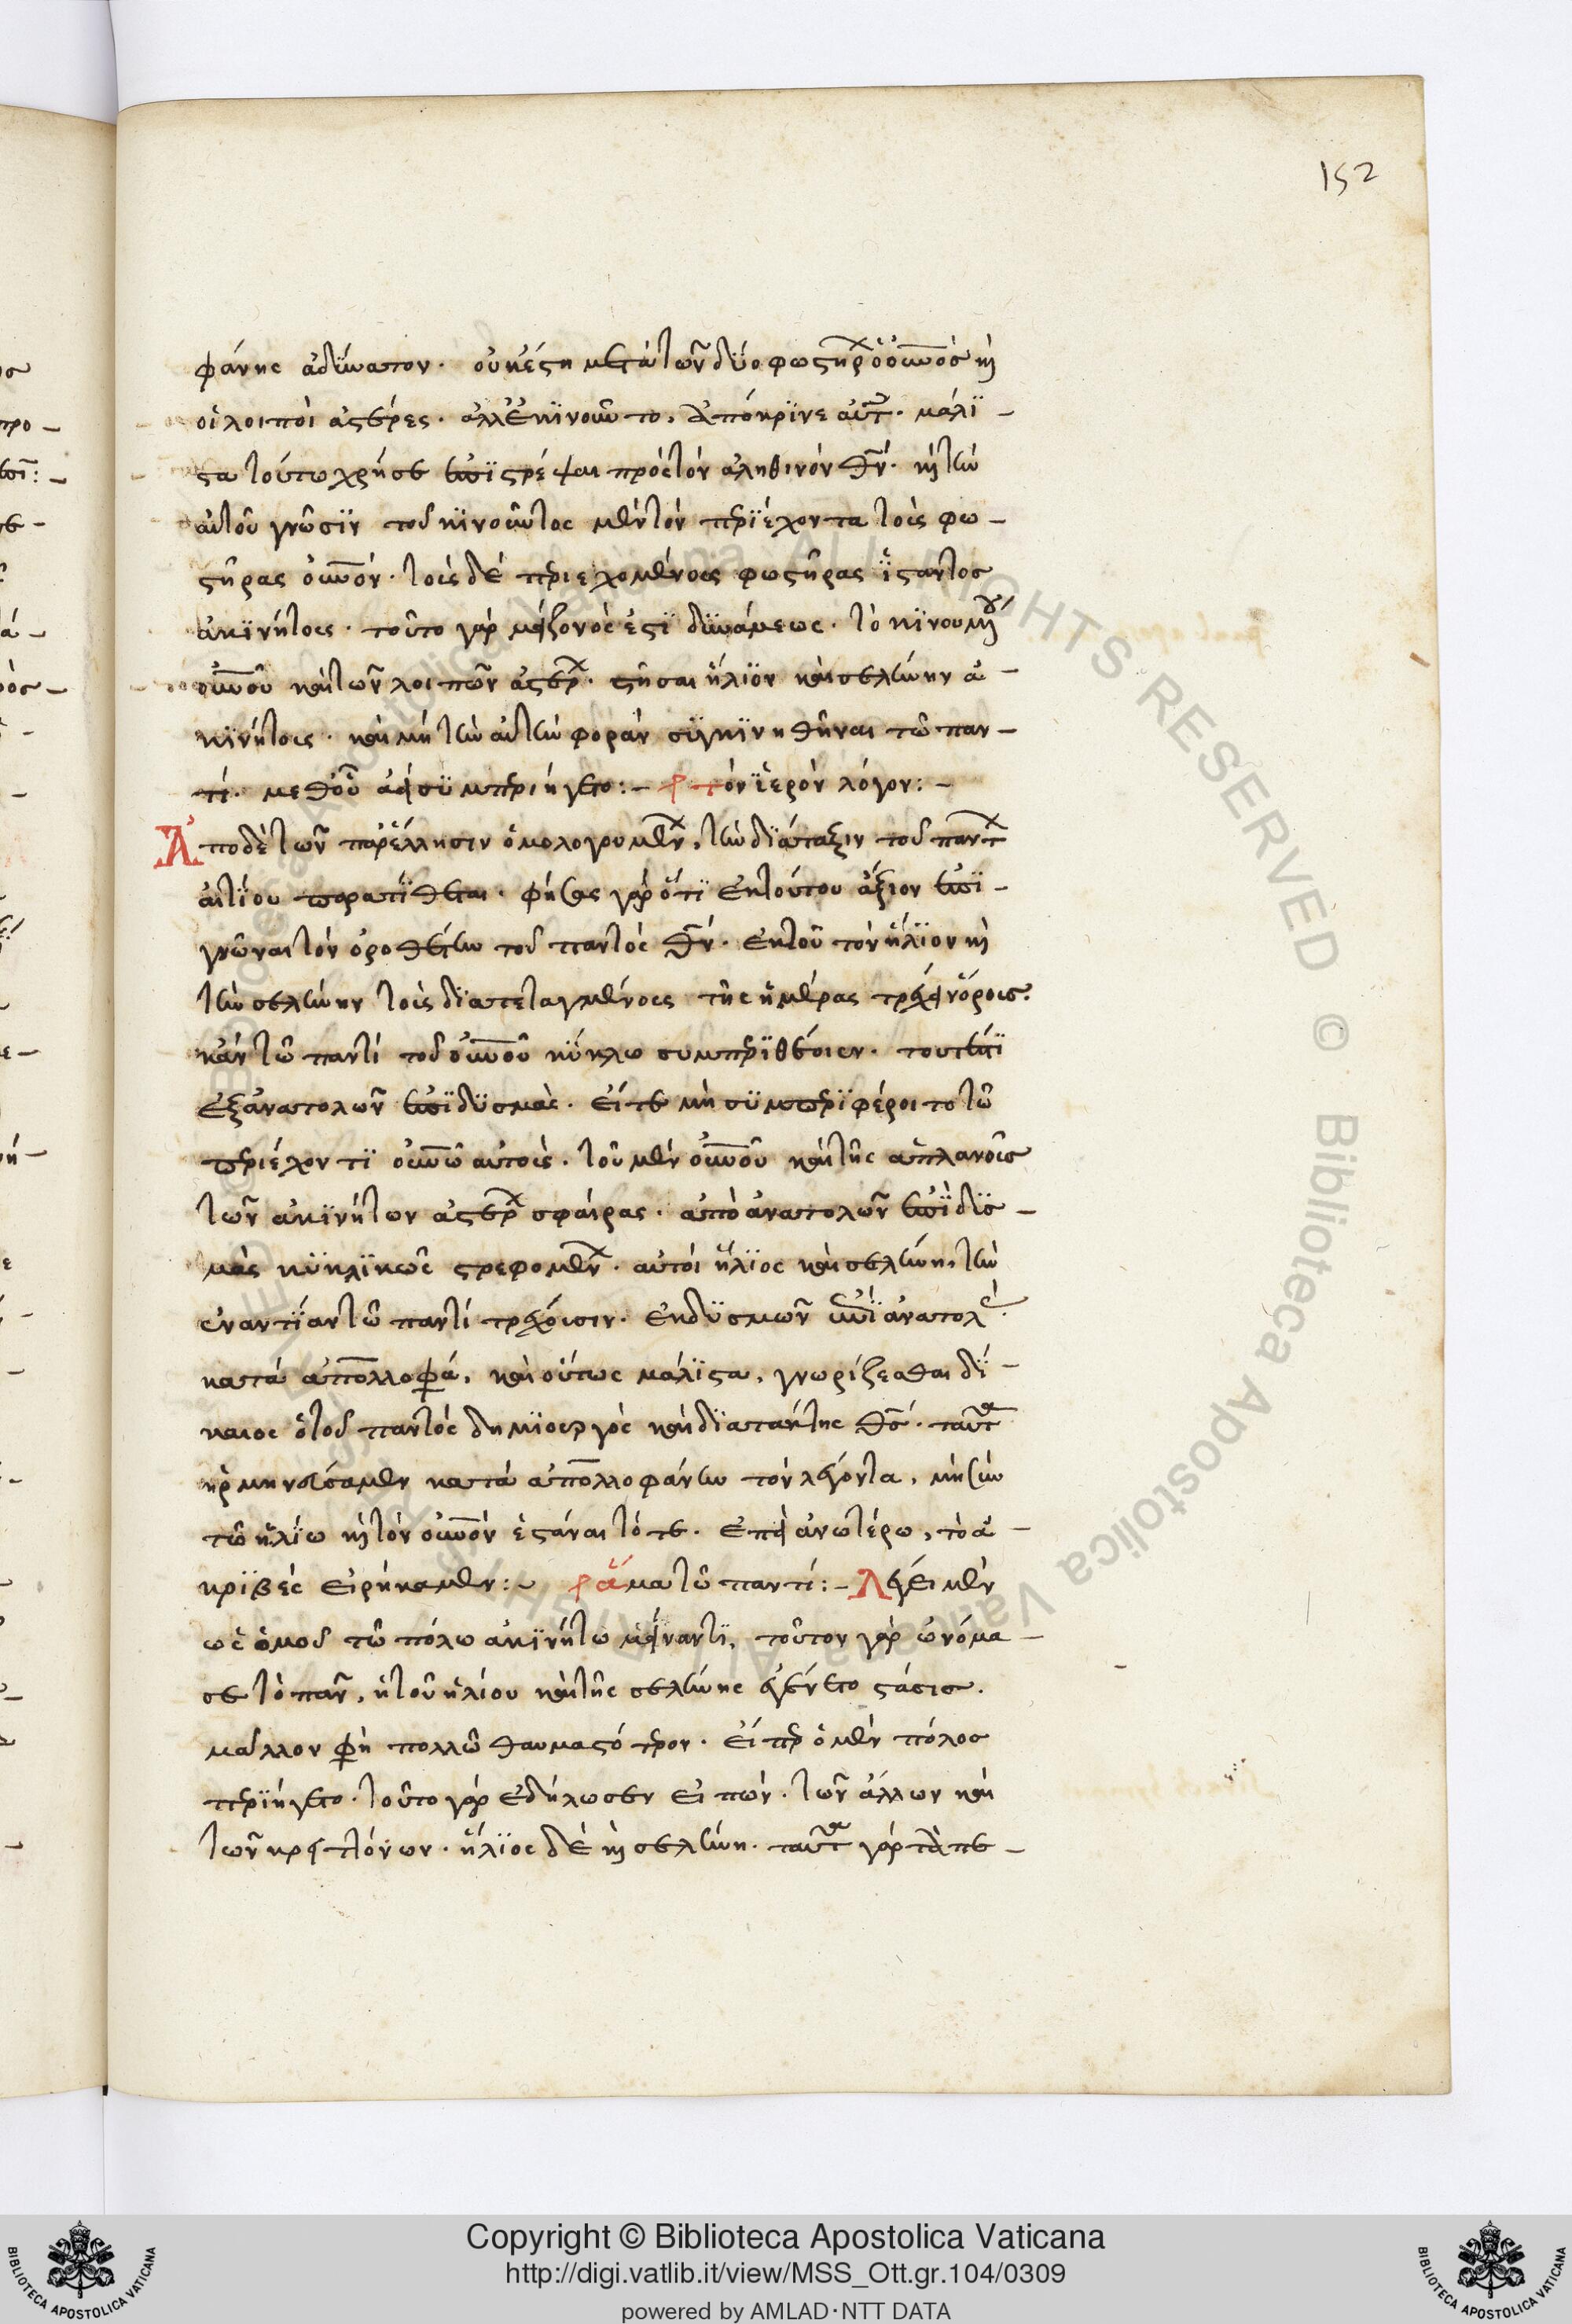 152
φάνης ἀδύνατον. οὐκέστη μετὰ τῶν δύο φωστήρ ὁ οὐνός κ
οἱ λοιποὶ ἀστέρες. ἀλλ ἐκινοῦντο. ἀπόκριναι αὐτ. μάλι-
στα τούτω χρῆσαι ἐπιστρέψαι πρὸς τὸν ἀληθινὸν θν. κ τὴν
αὐτοῦ γνῶσιν τοῦ κινοῦντος μὲν τὸν περιέχοντα τοὺς φω-
στῆρας οὐνόν. τοὺς δὲ περιεχομένους φωστῆρας ἱστάντος
ἀκινήτους. τοῦτο γὰρ μείζονός ἐστι δυνάμεως. τὸ κινουμέν
οὐνοῦ καὶ τῶν λοιπῶν ἀστέρ. στῆσαι ἥλιον καὶ σελήνην ἀ-
κινήτους. καὶ μὴ τὴν αὐτὴν φορὰν συγκινηθῆναι τῶ παν-
τί. μεθ οὗ ἀεὶ συμπεριήγετο:- τὸν ἱερὸν λόγον:-
Ἀπὸ δὲ τῶν παρ ἕλλησιν ὁμολογουμέν, τὴν διάταξιν τοῦ παντ
αἰτίου παρατίθεται. φήσας γὰρ ὅτι ἐκ τούτου ἄξιον ἐπι-
γνῶναι τὸν ὁροθέτην τοῦ παντὸς θν. ἐκ τοῦ τὸν ἥλιον κ
τὴν σελήνην τοὺς διατεταγμένους τῆς ἡμέρας τρέχειν ὅρους.
κἂν τῶ παντὶ τοῦ οὐνοῦ κύκλω συμπεριθέοιεν. τουτέστι
ἐξ ἀνατολῶν ἐπὶ δυσμάς. εἴτε μὴ συμπεριφέροιτο τῶ
περιέχοντι οὐνῶ αὐτούς. τοῦ μὲν οὐνοῦ καὶ τῆς ἀπλανοῦς
τῶν ἀκινήτων ἀστέρ σφαίρας. ἀπὸ ἀνατολῶν ἐπὶ δυσ-
μὰς κυκλικῶς στρεφομέν. αὐτοὶ ἥλιος καὶ σελήνη, τὴν
ἐναντίαν τῶ παντὶ τρέχουσιν. ἐκ δυσμῶν ἐπὶ ἀνατολ
κατὰ ἀπολλοφά. καὶ οὕτως μάλιστα, γνωρίζεσθαι δί-
καιος ὁ τοῦ παντὸς δημιουργὸς καὶ διατάκτης θς. ταῦτ
ἡρμηνεύσαμεν κατὰ ἀπολλοφάνην τὸν λέγοντα, μὴ σὺν
τῶ ἡλίω κ τὸν οὐνὸν ἑστάναι τότε. ἐπεὶ ἀνωτέρω, τὸ ἀ-
κριβὲς εἰρήκαμεν:- ἅμα τῶ παντί:- Λέγει μὲν
ὡς ὁμοῦ τῶ πόλω ἀκινήτω μείναντι, τοῦτον γὰρ ὠνόμα-
σε τὸ πᾶν, ἡ τοῦ ἡλίου καὶ τῆς σελήνης ἐγένετο στάσις.
μᾶλλον φη πολλῶ θαυμαστότερον. εἴπερ ὁ μὲν πόλος
περιήγετο. τοῦτο γὰρ ἐδήλωσεν εἰπών. τῶν ἄλλων καὶ
τῶν κρειττόνων. ἥλιος δὲ κ σελήνη. ταῦτ γὰρ τά τε-
Copyright © Biblioteca Apostolica Vaticana
http://digi.vatlib.it/view/MSS_Ott.gr.104/0309
powered by AMLAD·NTT DATA